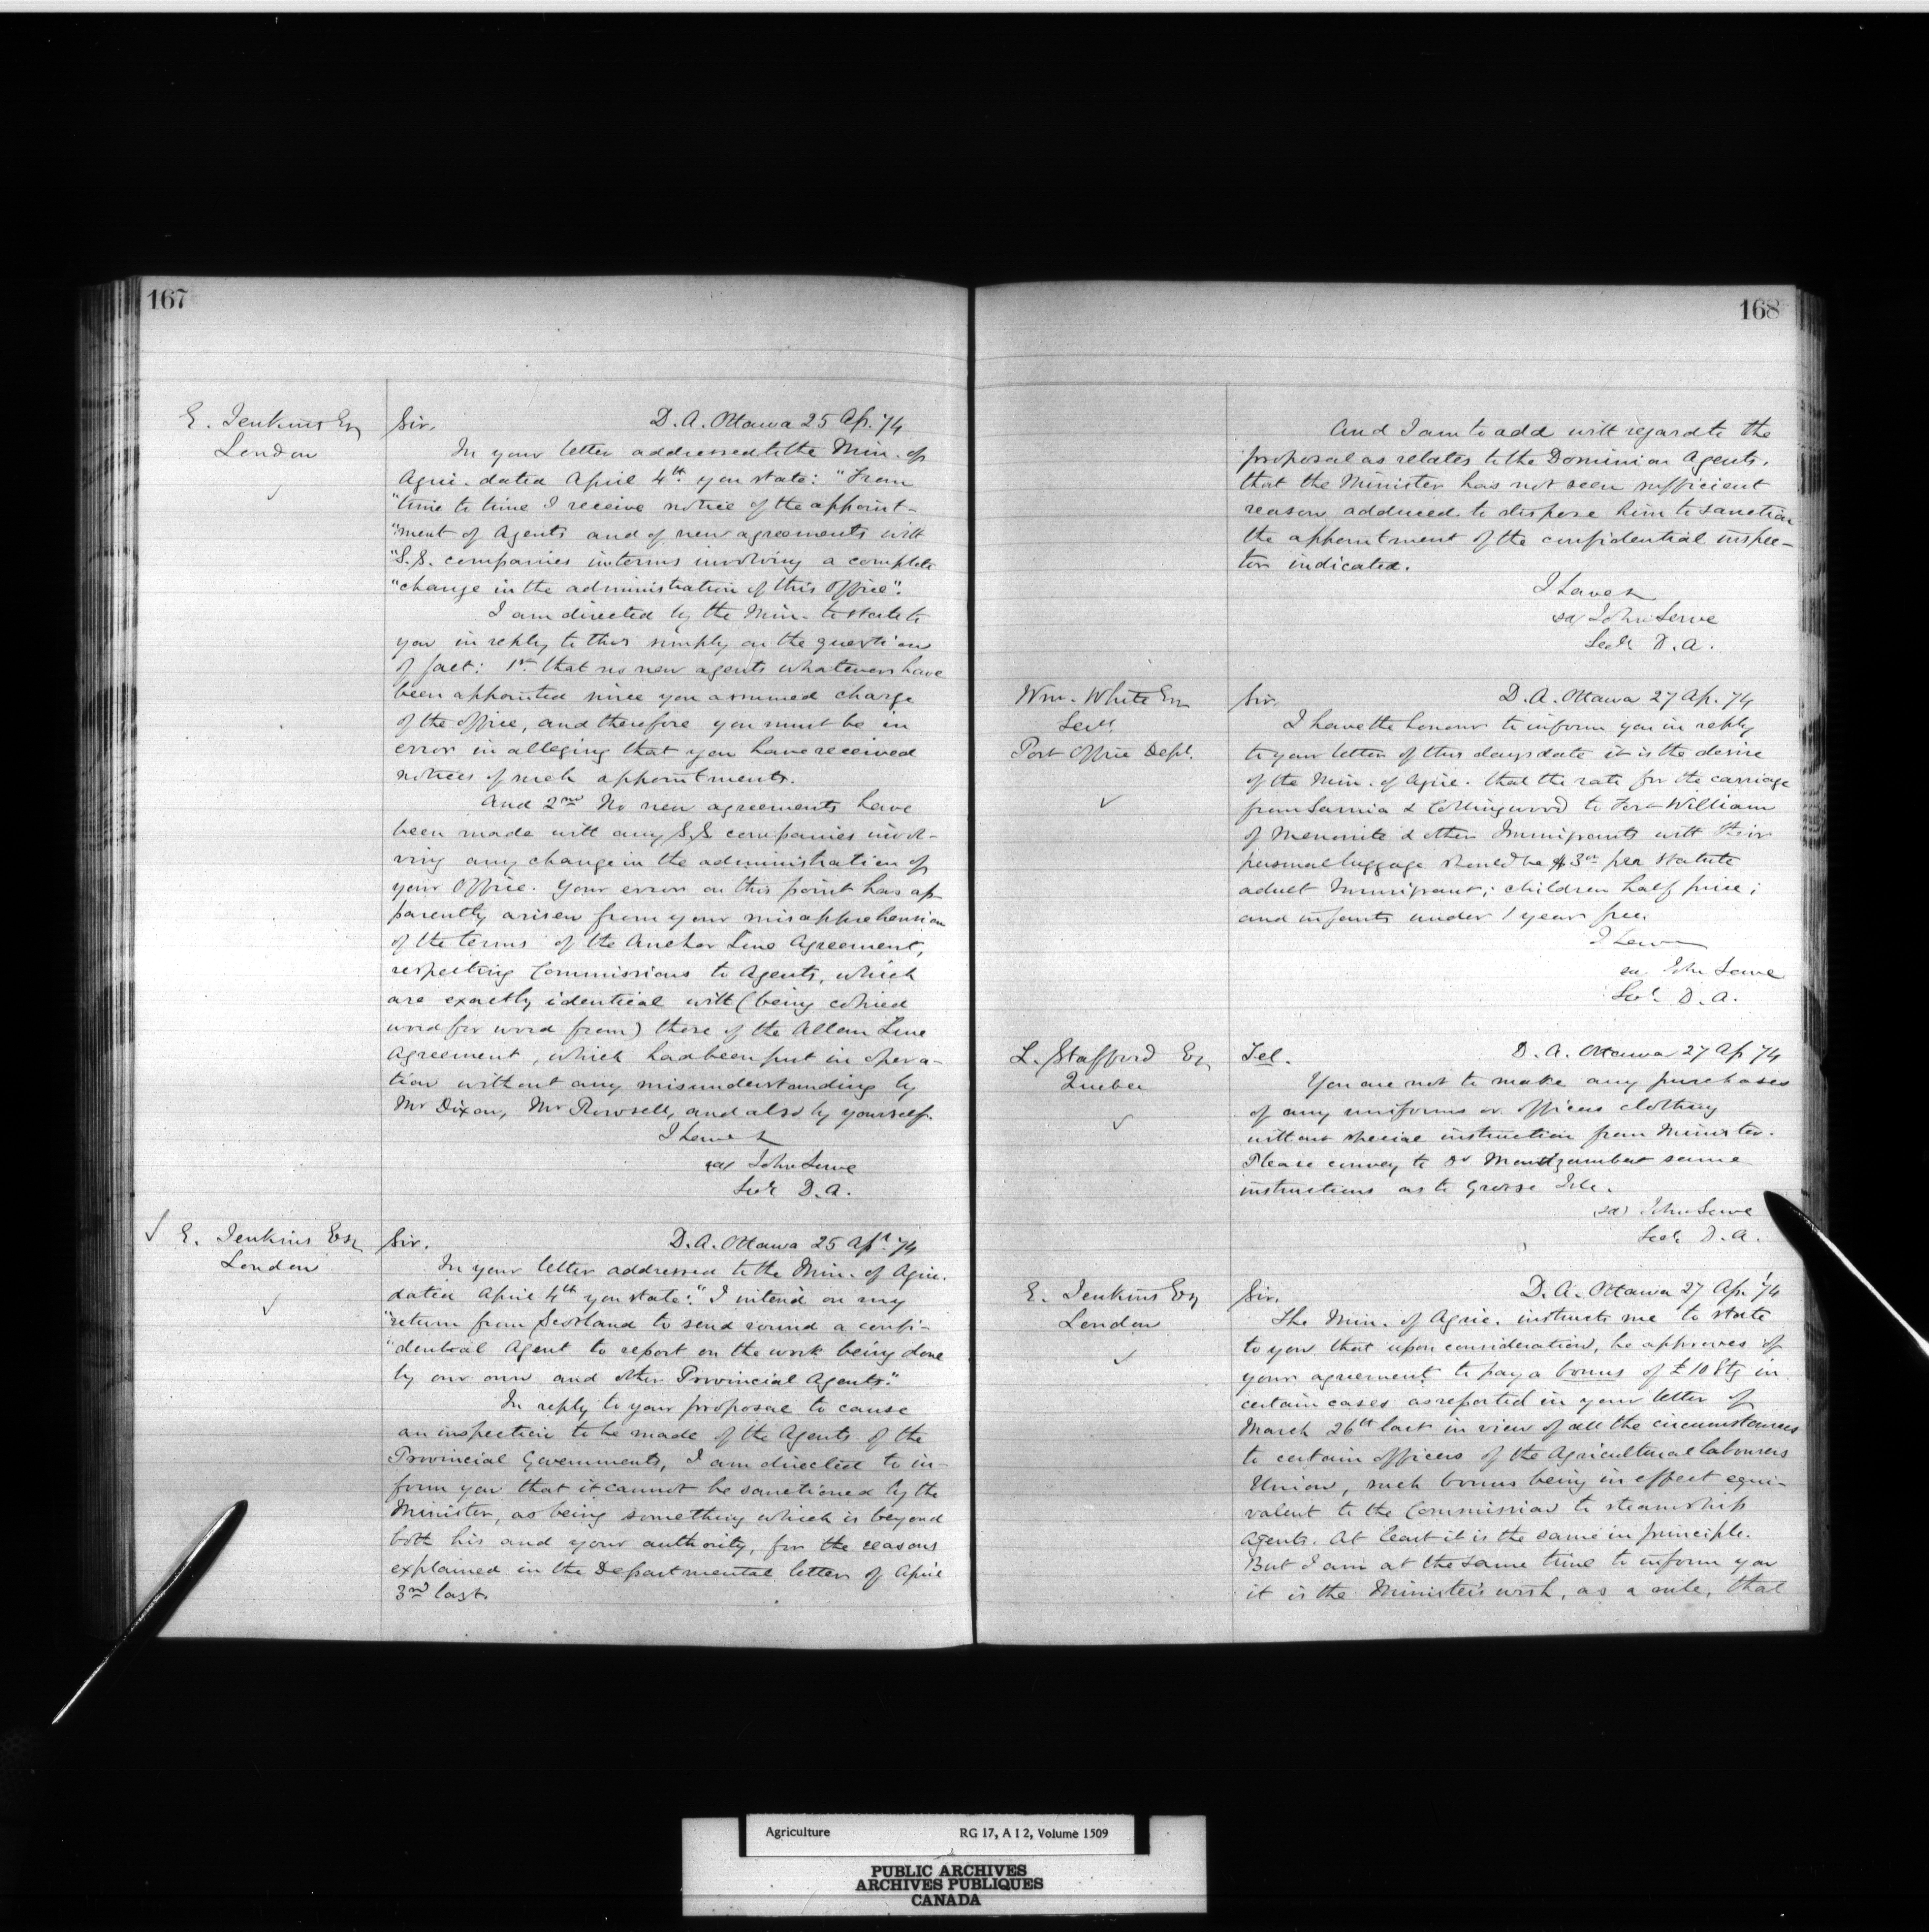 167
E. Jenkins Esq
London
Sir, D. A. Ottawa 25 Ap. '74
In your letter addressed to the Min. of
Agric. dated April 4th you state: "From
"time to time I receive notice of the appoint-
"ment of Agents and of new agreements with
"S.S. companies in terms involving a complete
"change in the administration of this Office".
I am directed by the Min. to state to
you in reply to this simply on the question
of fact: 1st that no new agents whatever have
been appointed since you assumed charge
of the office, and therefore you must be in
error in alleging that you have received
notices of such appointments.
And 2nd No new agreements have
been made with any S.S. companies invol-
ving any change in the administration of
your Office. Your error on this point has ap
parently arisen from your misapprehension
of the terms of the Anchor Line Agreement,
respecting Commissions to Agents, which
are exactly identical with (being copied
word for word from) those of the Allan Line
Agreement, which had been put in opera-
tion without any misunderstanding by
Mr Dixon, Mr Rowsell, and also by yourself.
I have &
sd/ John Lowe
Secy D.A.
E. Jenkins Esq
London
Sir. D. A. Ottawa 25 Apl. '74
In your letter addressed to the Min. of Agric.
dated April 4th you state: "I intend on my
"return from Scotland to send round a confi-
"dential Agent to report on the work being done
by our own and other Provincial Agents."
In reply to your proposal to cause
an inspection to be made of the Agents of the
Provincial Governments, I am directed to in-
form you that it cannot be sanctioned by the
Minister, as being something which is beyond
both his and your authority, for the reasons
explained in the Departmental letter of April
3rd last.
168
And I am to add with regard to the
proposal as relates to the Dominion Agents,
that the Minister has not seen sufficient
reason adduced to dispose him to sanction
the appointment of the confidential inspec-
tor indicated.
I have &
sd/ John Lowe
Secy D.A.
Wm. White Esq
Secy.
Post Office Dept.
Sir. D. A. Ottawa 27 Ap. '74
I have the honour to inform you in reply
to your letter of this days date it is the desire
of the Min. of Agric. that the rate for the carriage
from Sarnia & Collingwood to Fort William
of Menonite & other Immigrants with their
personal luggage should be $3.00 per statute
adult Immigrant; children half price;
and infants under 1 year free.
I have
sd. John Lowe
Secy. D. A.
L. Stafford Esq
Quebec
Tel. D. A. Ottawa 27 Ap '74
You are not to make any purchases
of any uniforms or officers clothing
without special instruction from Minister.
Please convey to Dr Montizambert same
instructions as to Grosse Isle.
(sd) John Lowe
Secy D. A.
E. Jenkins Esq
London
Sir. D. A. Ottawa 27 Apl '74
The Min. of Agric. instructs me to state
to you that upon consideration, he approves of
your agreement to pay a bonus of £10 Stg in
certain cases as reported in your letter of
March 26th last in view of all the circumstances
to certain officers of the Agricultural labourers
Union, such bonus being in effect equi-
valent to the Commission to steamship
agents. At least it is the same in principle.
But I am at the same time to inform you
it is the Minister's wish, as a rule, that
Agriculture RG 17, A I 2, Volume 1509
PUBLIC ARCHIVES
ARCHIVES PUBLIQUES
CANADA